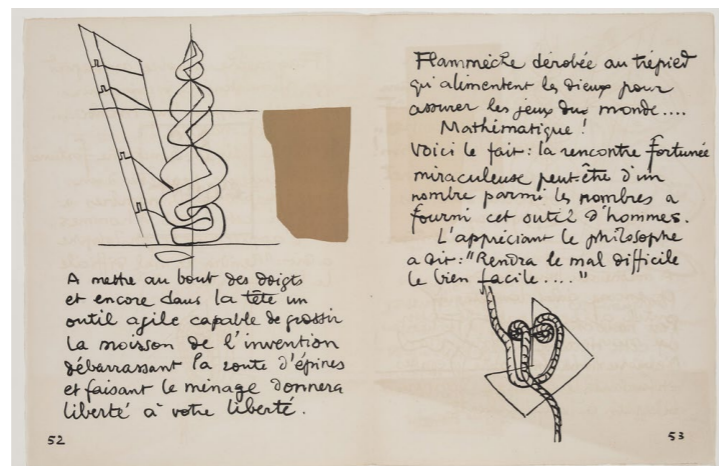 A mettre au bout des doigts
et encore dans la tête un
outil agile capable de grossir
la moisson de l'invention
débarrassant la route d'épines
et faisant le ménage donnera
liberté à votre liberté.
52
Flammèche dérobée au trépied
qu'alimentent les dieux pour
assurer les jeux du monde....
Mathématique!
Voici le fait: la rencontre fortunée
miraculeuse peut-être d'un
nombre parmi les nombres a
fourni cet outil d'hommes.
L'appréciant le philosophe
a dit: "Rendra le mal difficile
le bien facile...."
53